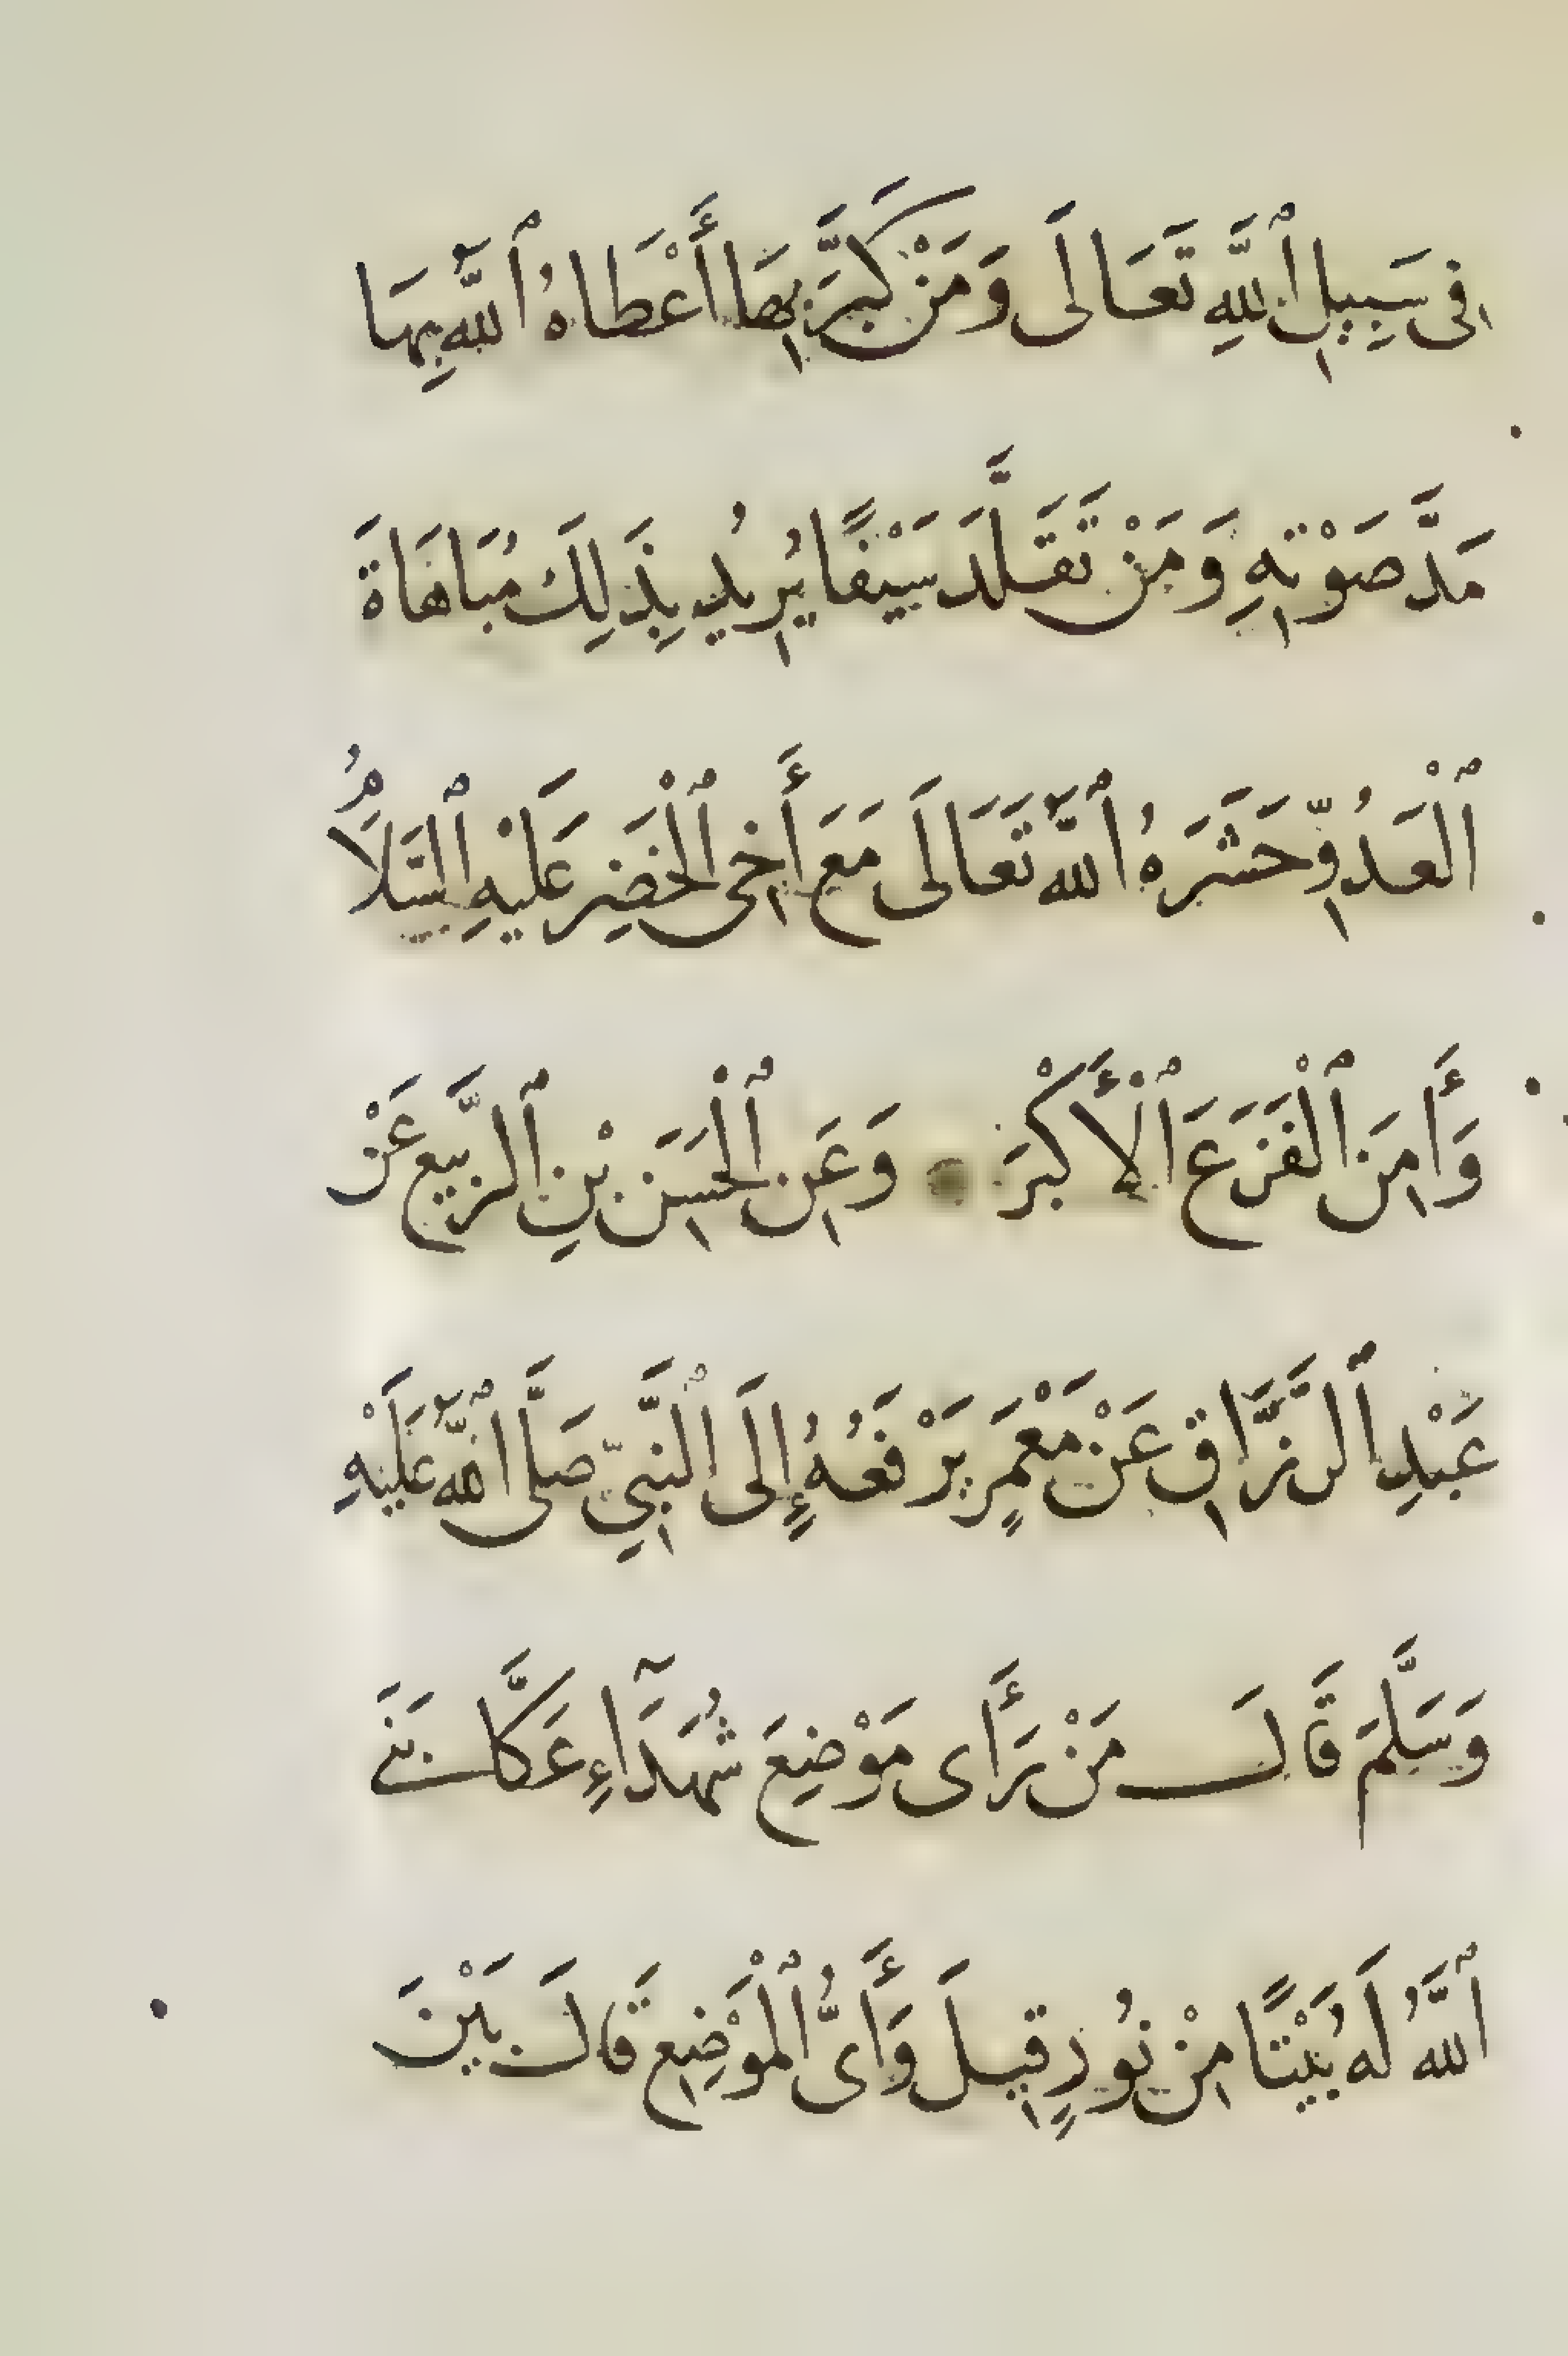 فِى سَبِيلِ ٱللَّهِ تَعَالَى وَمَنْ كَبَّرَ بِهَا أَعْطَاهُ ٱللَّهُ بِهَا
مَدَّ صَوْتِهِ وَمَنْ تَقَلَّدَ سَيْفًا يُرِيدُ بِذَلِكَ مُبَاهَاةَ
ٱلْعَدُوِّ حَشَرَهُ ٱللَّهُ تَعَالَى مَعَ أَخِى ٱلْخَضِرِ عَلَيْهِ ٱلسَّلَامُ
وَأَمِنَ ٱلْفَزَعَ ٱلْأَكْبَرَ وَعَنِ ٱلْحَسَنِ بْنِ ٱلرَّبِيعِ عَنْ
عَبْدِ ٱلرَّزَّاقِ عَنْ مَعْمَرٍ يَرْفَعُهُ إِلَى ٱلنَّبِيِّ صَلَّى ٱللَّهُ عَلَيْهِ
وَسَلَّمَ قَالَ مَنْ رَأَى مَوْضِعَ شُهَدَآءِ عَكَّا بَنَى
ٱللَّهُ لَهُ بَيْتًا مِنْ نُورٍ قِيلَ وَأَىُّ ٱلْمَوْضِعِ قَالَ بَيْنَ